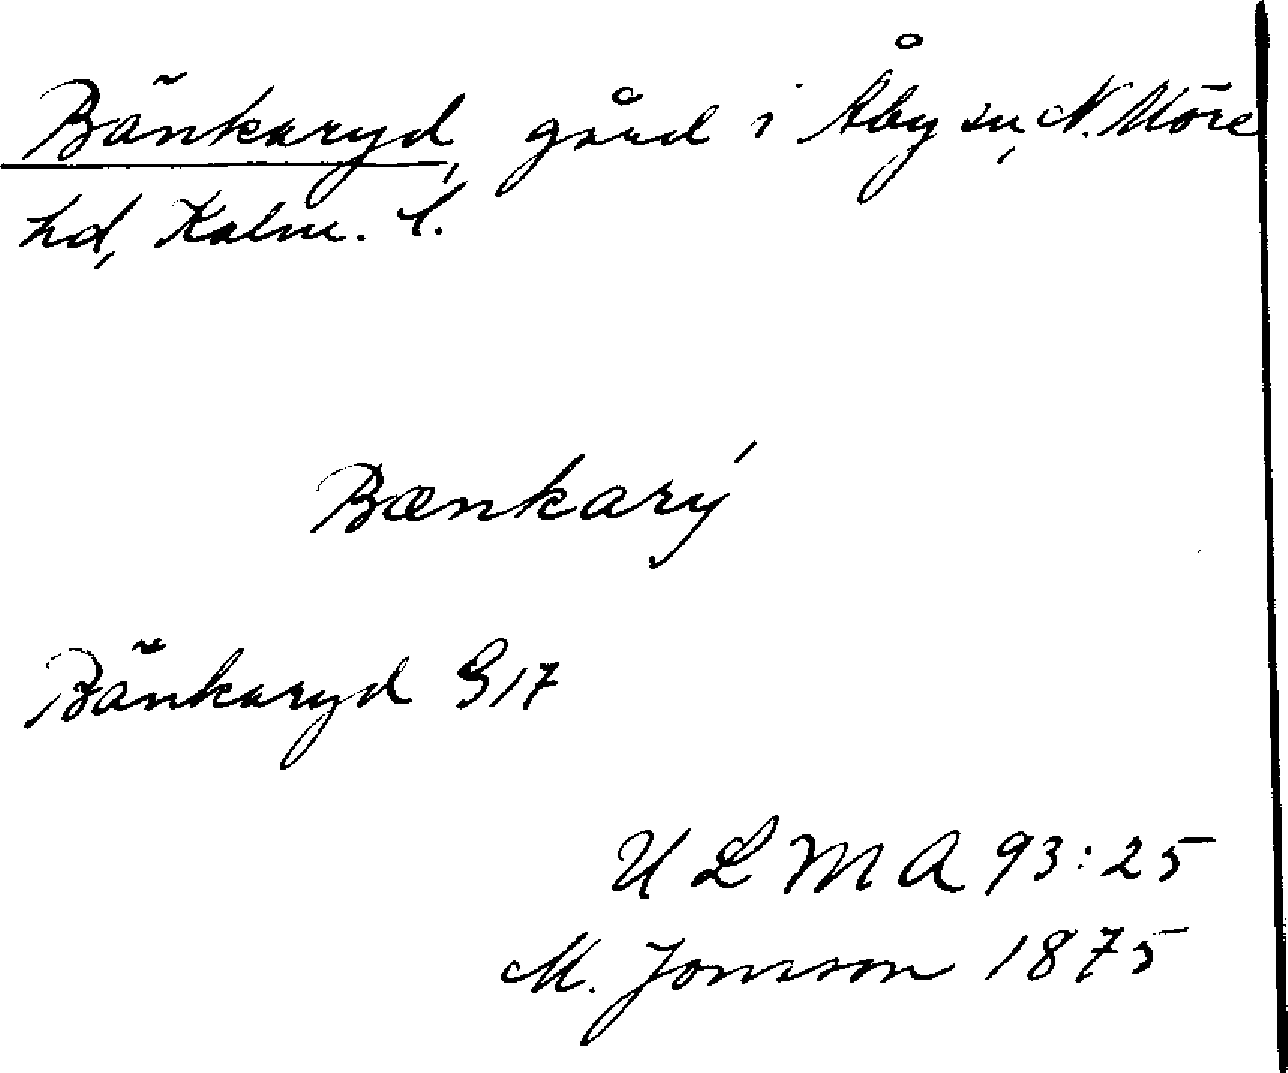 Bänkaryd, gård i Åby sn, N. Möre
hd, Kalm. l.
Bænkarý
Bänkaryd S17
ULMA 93:25
M. Jonsson 1875